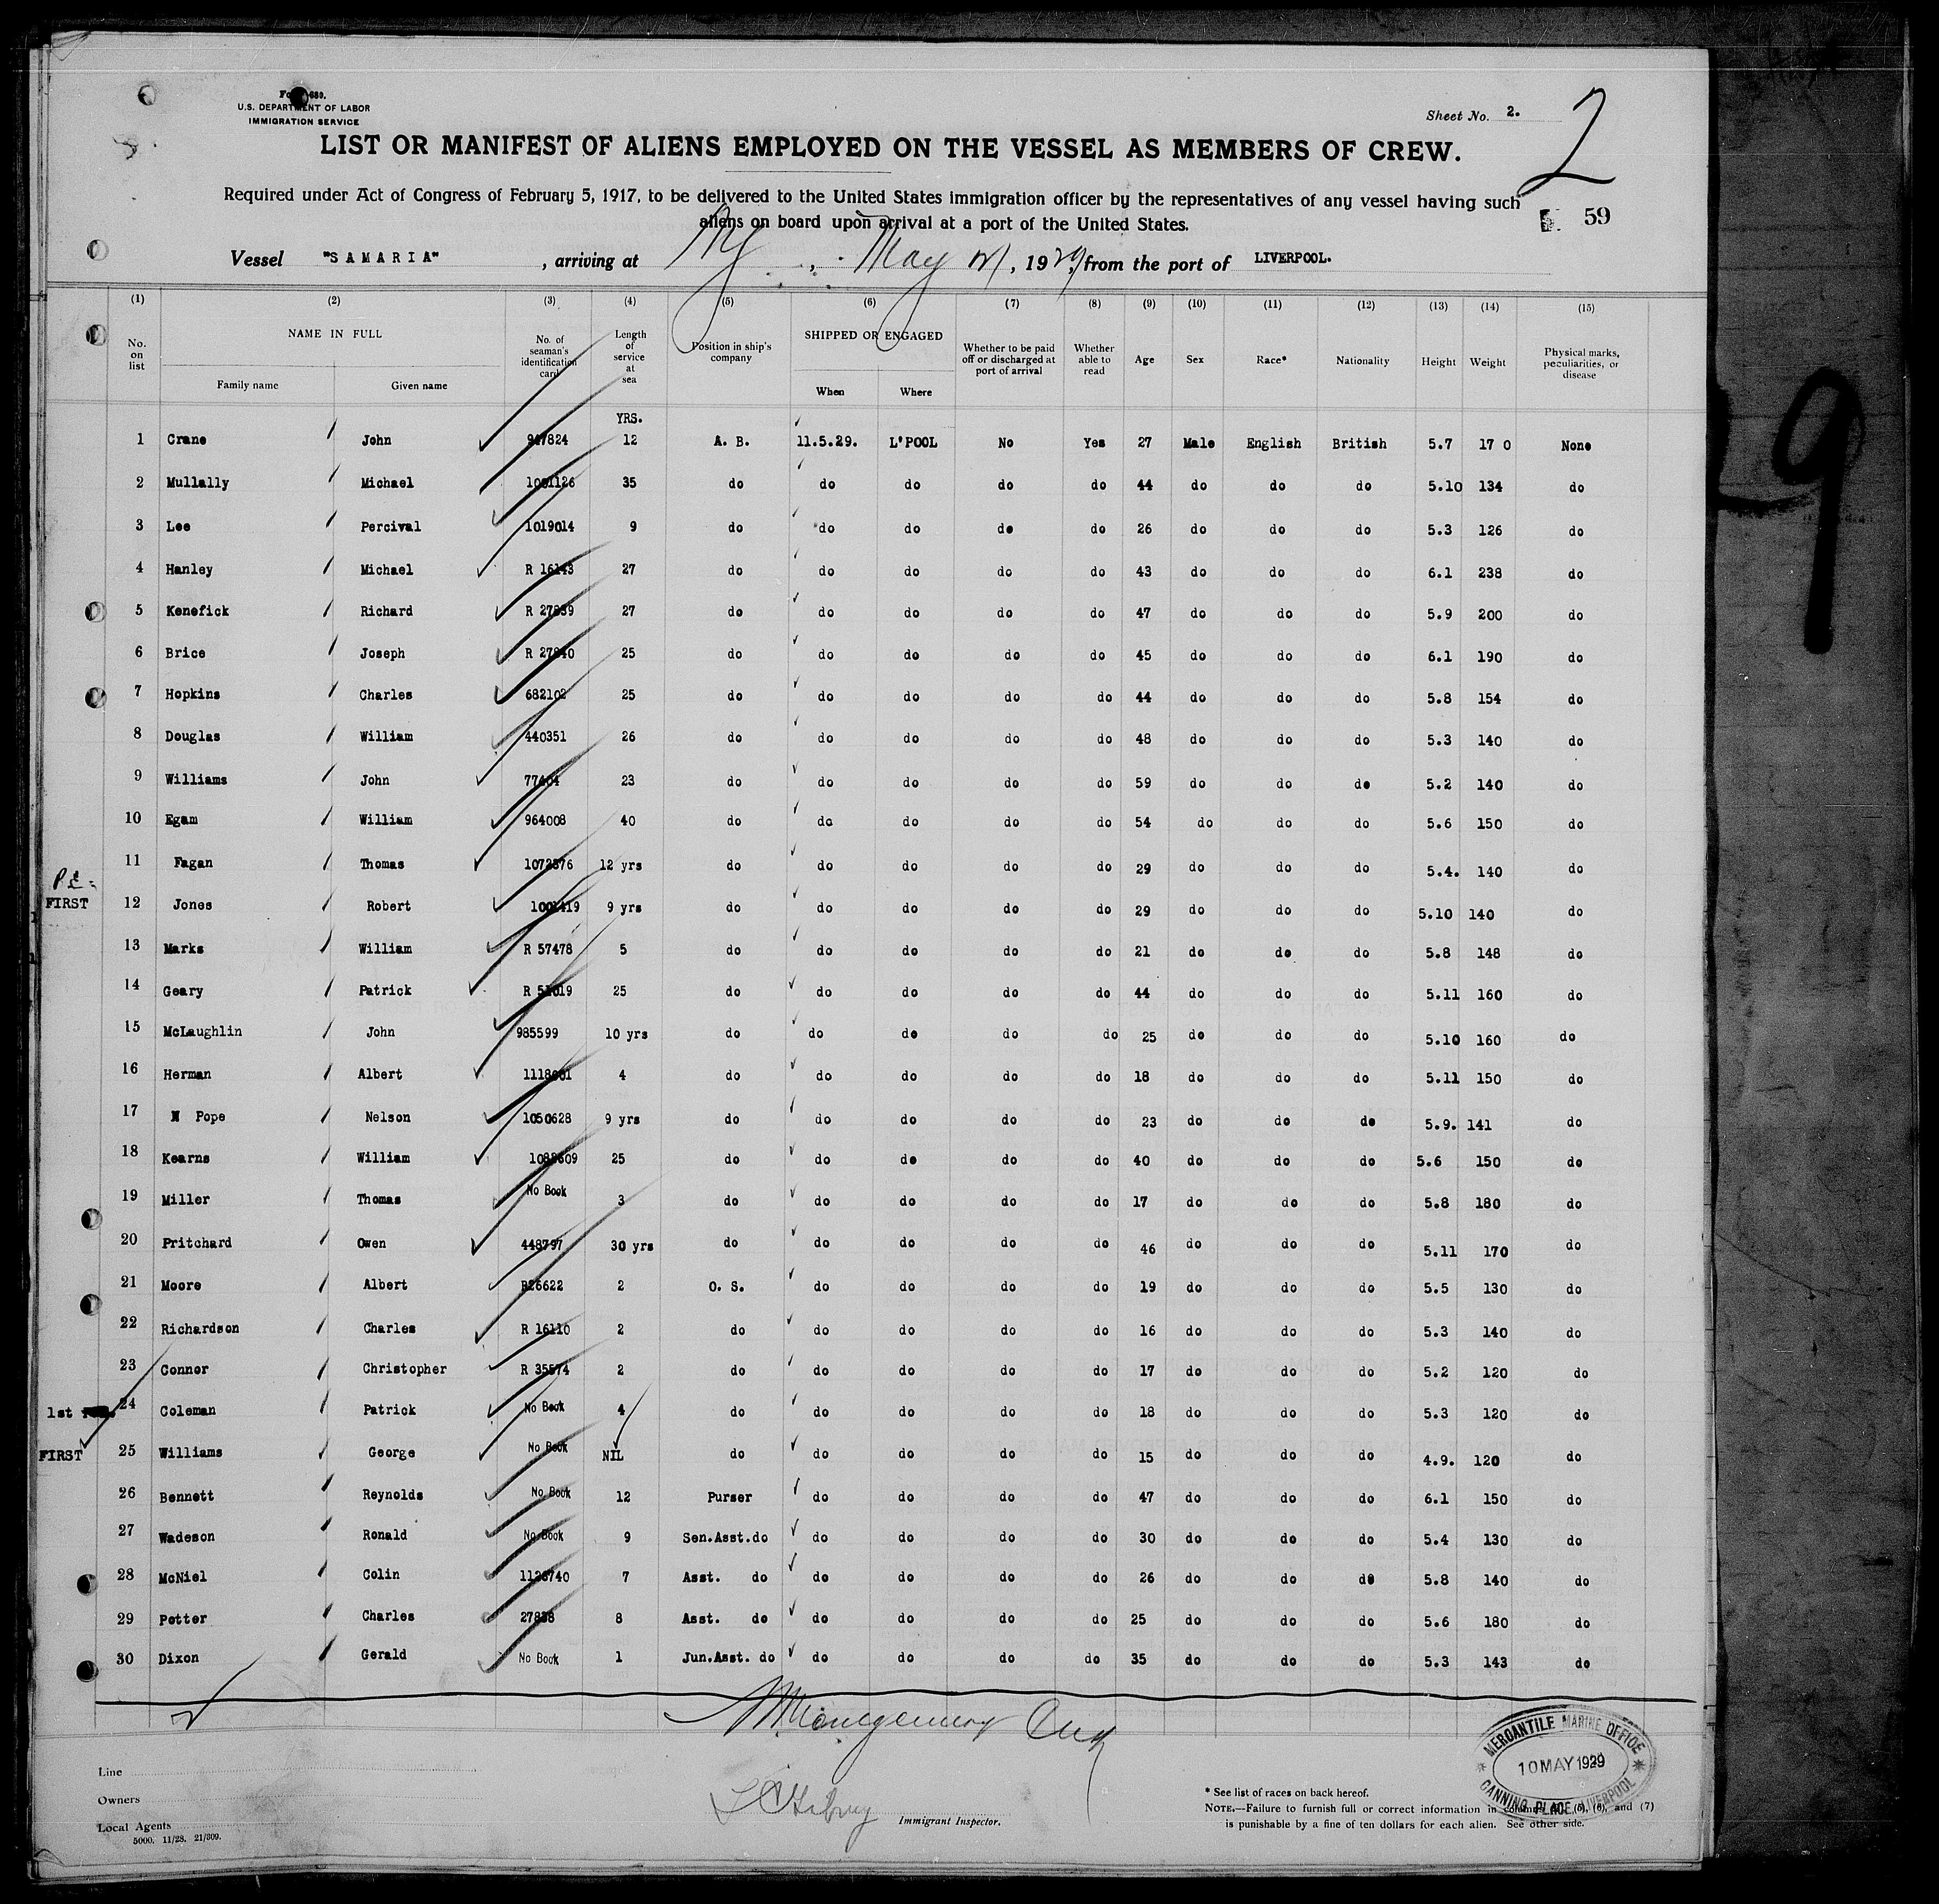 U.S. DEPARTMENT OF LABOR
IMMIGRATION SERVICE
Sheet No. 2.
2
LIST OR MANIFEST OF ALIENS EMPLOYED ON THE VESSEL AS MEMBERS OF CREW.
Required under Act of Congress of February 5, 1917, to be delivered to the United States immigration officer by the representatives of any vessel having such
aliens on board upon arrival at a port of the United States.
59
Vessel "SAMARIA", arriving at NY, May, 1929, from the port of LIVERPOOL.
(1) (2) (3) (4) (5) (6) (7) (8) (9) (10) (11) (12) (13) (14) (15)
No. on list NAME IN FULL Family name Given name No. of seaman's identification card Length of service at sea Position in ship's company SHIPPED OR ENGAGED When Where Whether to be paid off or discharged at port of arrival Whether able to read Age Sex Race* Nationality Height Weight Physical marks, peculiarities, or disease
YRS.
1 Crane John 947824 12 A. B. 11.5.29. L'POOL No Yes 27 Male English British 5.7 17 0 None
2 Mullally Michael 1001126 35 do do do do do 44 do do do 5.10 134 do
3 Lee Percival 1019014 9 do do do do do 26 do do do 5.3 126 do
4 Hanley Michael R 16143 27 do do do do do 43 do do do 6.1 238 do
5 Kenefick Richard R 27839 27 do do do do do 47 do do do 5.9 200 do
6 Brice Joseph R 27840 25 do do do do do 45 do do do 6.1 190 do
7 Hopkins Charles 682102 25 do do do do do 44 do do do 5.8 154 do
8 Douglas William 440351 26 do do do do do 48 do do do 5.3 140 do
9 Williams John 77404 23 do do do do do 59 do do do 5.2 140 do
10 Egam William 964008 40 do do do do do 54 do do do 5.6 150 do
11 Fagan Thomas 1072376 12 yrs do do do do do 29 do do do 5.4. 140 do
FIRST 12 Jones Robert 1001419 9 yrs do do do do do 29 do do do 5.10 140 do
13 Marks William R 57478 5 do do do do do 21 do do do 5.8 148 do
14 Geary Patrick R 51019 25 do do do do do 44 do do do 5.11 160 do
15 McLaughlin John 985599 10 yrs do do do do do 25 do do do 5.10 160 do
16 Herman Albert 1118601 4 do do do do do 18 do do do 5.11 150 do
17 N Pope Nelson 1050628 9 yrs do do do do do 23 do do do 5.9. 141 do
18 Kearns William 25 do do do do do 40 do do do 5.6 150 do
19 Miller Thomas No Book 3 do do do do do 17 do do do 5.8 180 do
20 Pritchard Owen 448797 30 yrs do do do do do 46 do do do 5.11 170 do
21 Moore Albert R26622 2 O. S. do do do do 19 do do do 5.5 130 do
22 Richardson Charles R 16110 2 do do do do do 16 do do do 5.3 140 do
23 Connor Christopher R 35574 2 do do do do do 17 do do do 5.2 120 do
1st 24 Coleman Patrick No Book 4 do do do do do 18 do do do 5.3 120 do
FIRST 25 Williams George No Book NIL do do do do do 15 do do do 4.9. 120 do
26 Bennett Reynolds No Book 12 Purser do do do do 47 do do do 6.1 150 do
27 Wadeson Ronald No Book 9 Sen.Asst.do do do do do 30 do do do 5.4 130 do
28 McNiel Colin 1126740 7 Asst. do do do do do 26 do do do 5.8 140 do
29 Potter Charles 27838 8 Asst. do do do do do 25 do do do 5.6 180 do
30 Dixon Gerald No Book 1 Jun.Asst. do do do do do 35 do do do 5.3 143 do
Line
Owners
Local Agents
5000. 11/28. 21/309.
Immigrant Inspector.
* See list of races on back hereof.
NOTE.—Failure to furnish full or correct information in columns (5), (6), and (7)
is punishable by a fine of ten dollars for each alien. See other side.
MERCANTILE MARINE OFFICE
10 MAY 1929
CANNING PLACE, LIVERPOOL